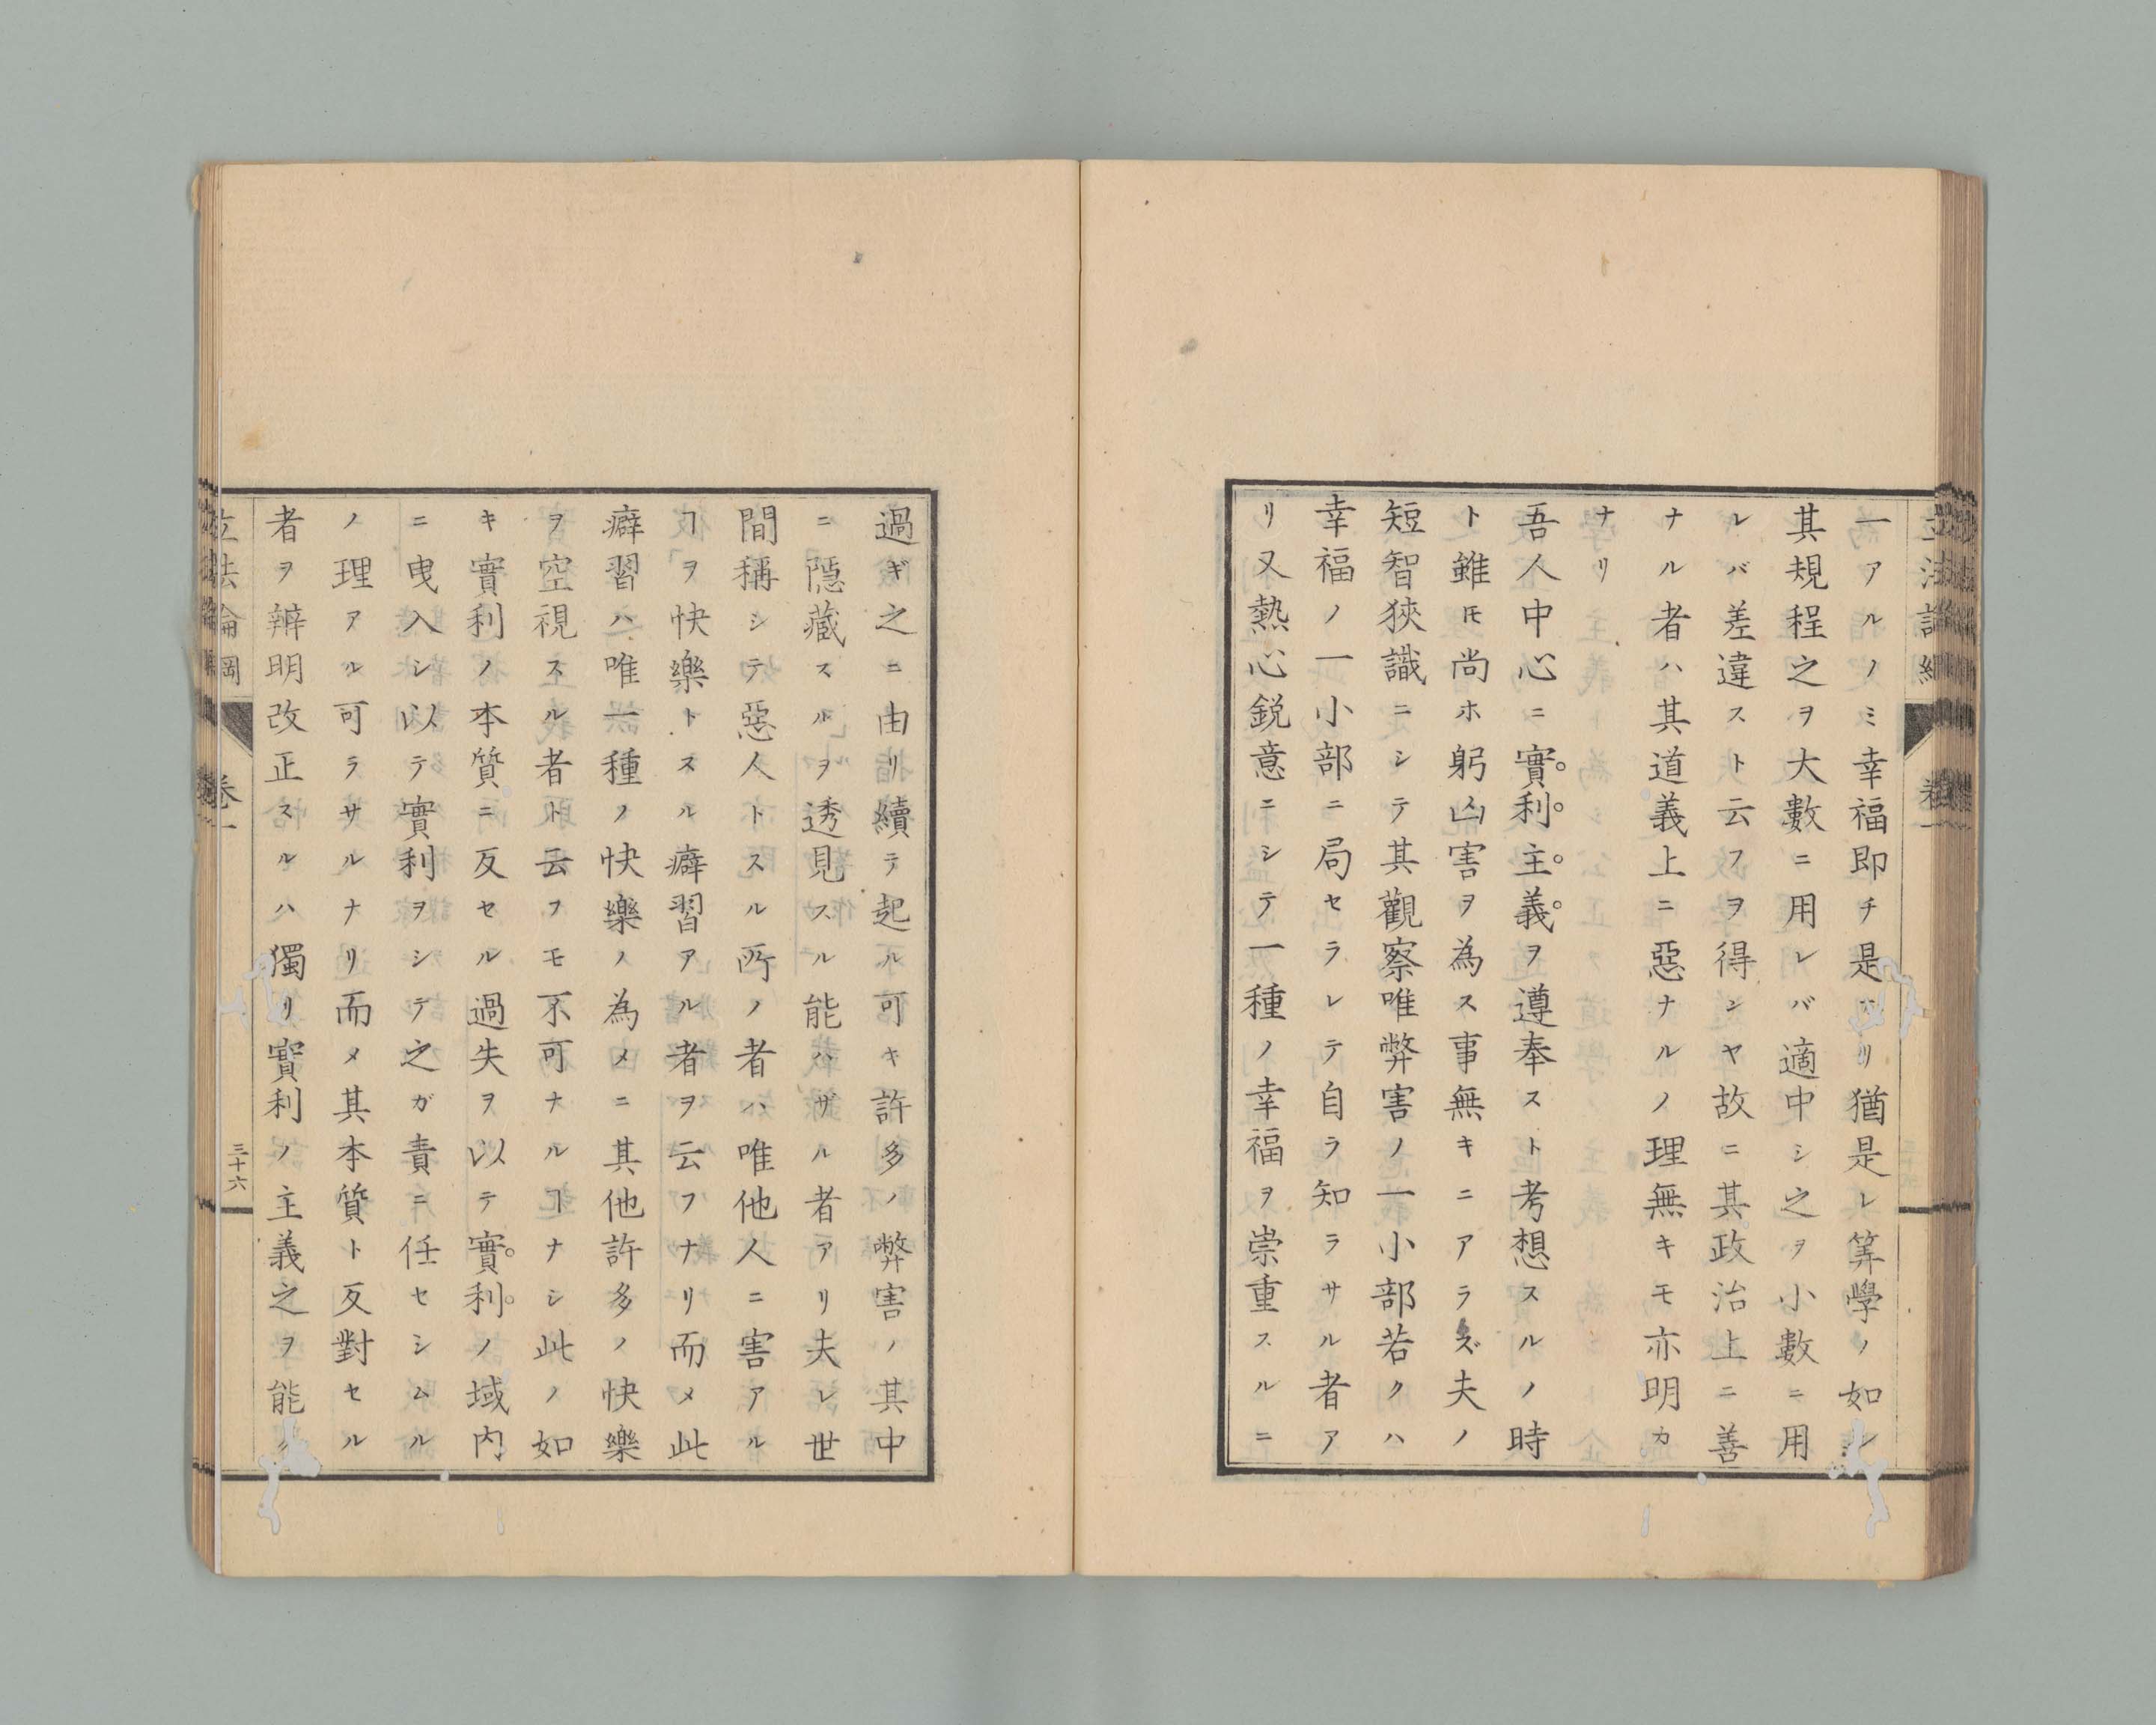 一アルノミ幸福即チ是ナリ猶是レ筭學ノ如シ
其規程之ヲ大數ニ用レバ適中シ之ヲ小數ニ用
レバ差違スト云フヲ得ンヤ故ニ其政治上ニ善
ナル者ハ其道義上ニ惡ナルノ理無キモ亦明カ
ナリ
吾人中心ニ實利主義ヲ遵奉スト考想スルノ時
ト雖𪜈尚ホ躬凶害ヲ為ス事無キニアラズ夫ノ
短智狹識ニシテ其觀察唯弊害ノ一小部若クハ
幸福ノ一小部ニ局セラレテ自ラ知ラサル者ア
リ又熱心鋭意ニシテ一種ノ幸福ヲ崇重スルニ
過ギ之ニ由リ續テ起ル可キ許多ノ弊害ノ其中
ニ隱藏スルヲ透見スル能ハザル者アリ夫レ世
間稱シテ惡人トスル所ノ者ハ唯他人ニ害アル
ヿヲ快樂トスル癖習アル者ヲ云フナリ而メ此
癖習ハ唯一種ノ快樂ノ為メニ其他許多ノ快樂
ヲ空視スル者ト云フモ不可ナルヿナシ此ノ如
キ實利ノ本質ニ反セル過失ヲ以テ實利ノ域内
ニ曳入シ以テ實利ヲシテ之ガ責ニ任セシムル
ノ理アル可ラサルナリ而メ其本質ト反對セル
者ヲ辨明改正スルハ獨リ實利ノ主義之ヲ能ク
立法論綱
卷一
三十六